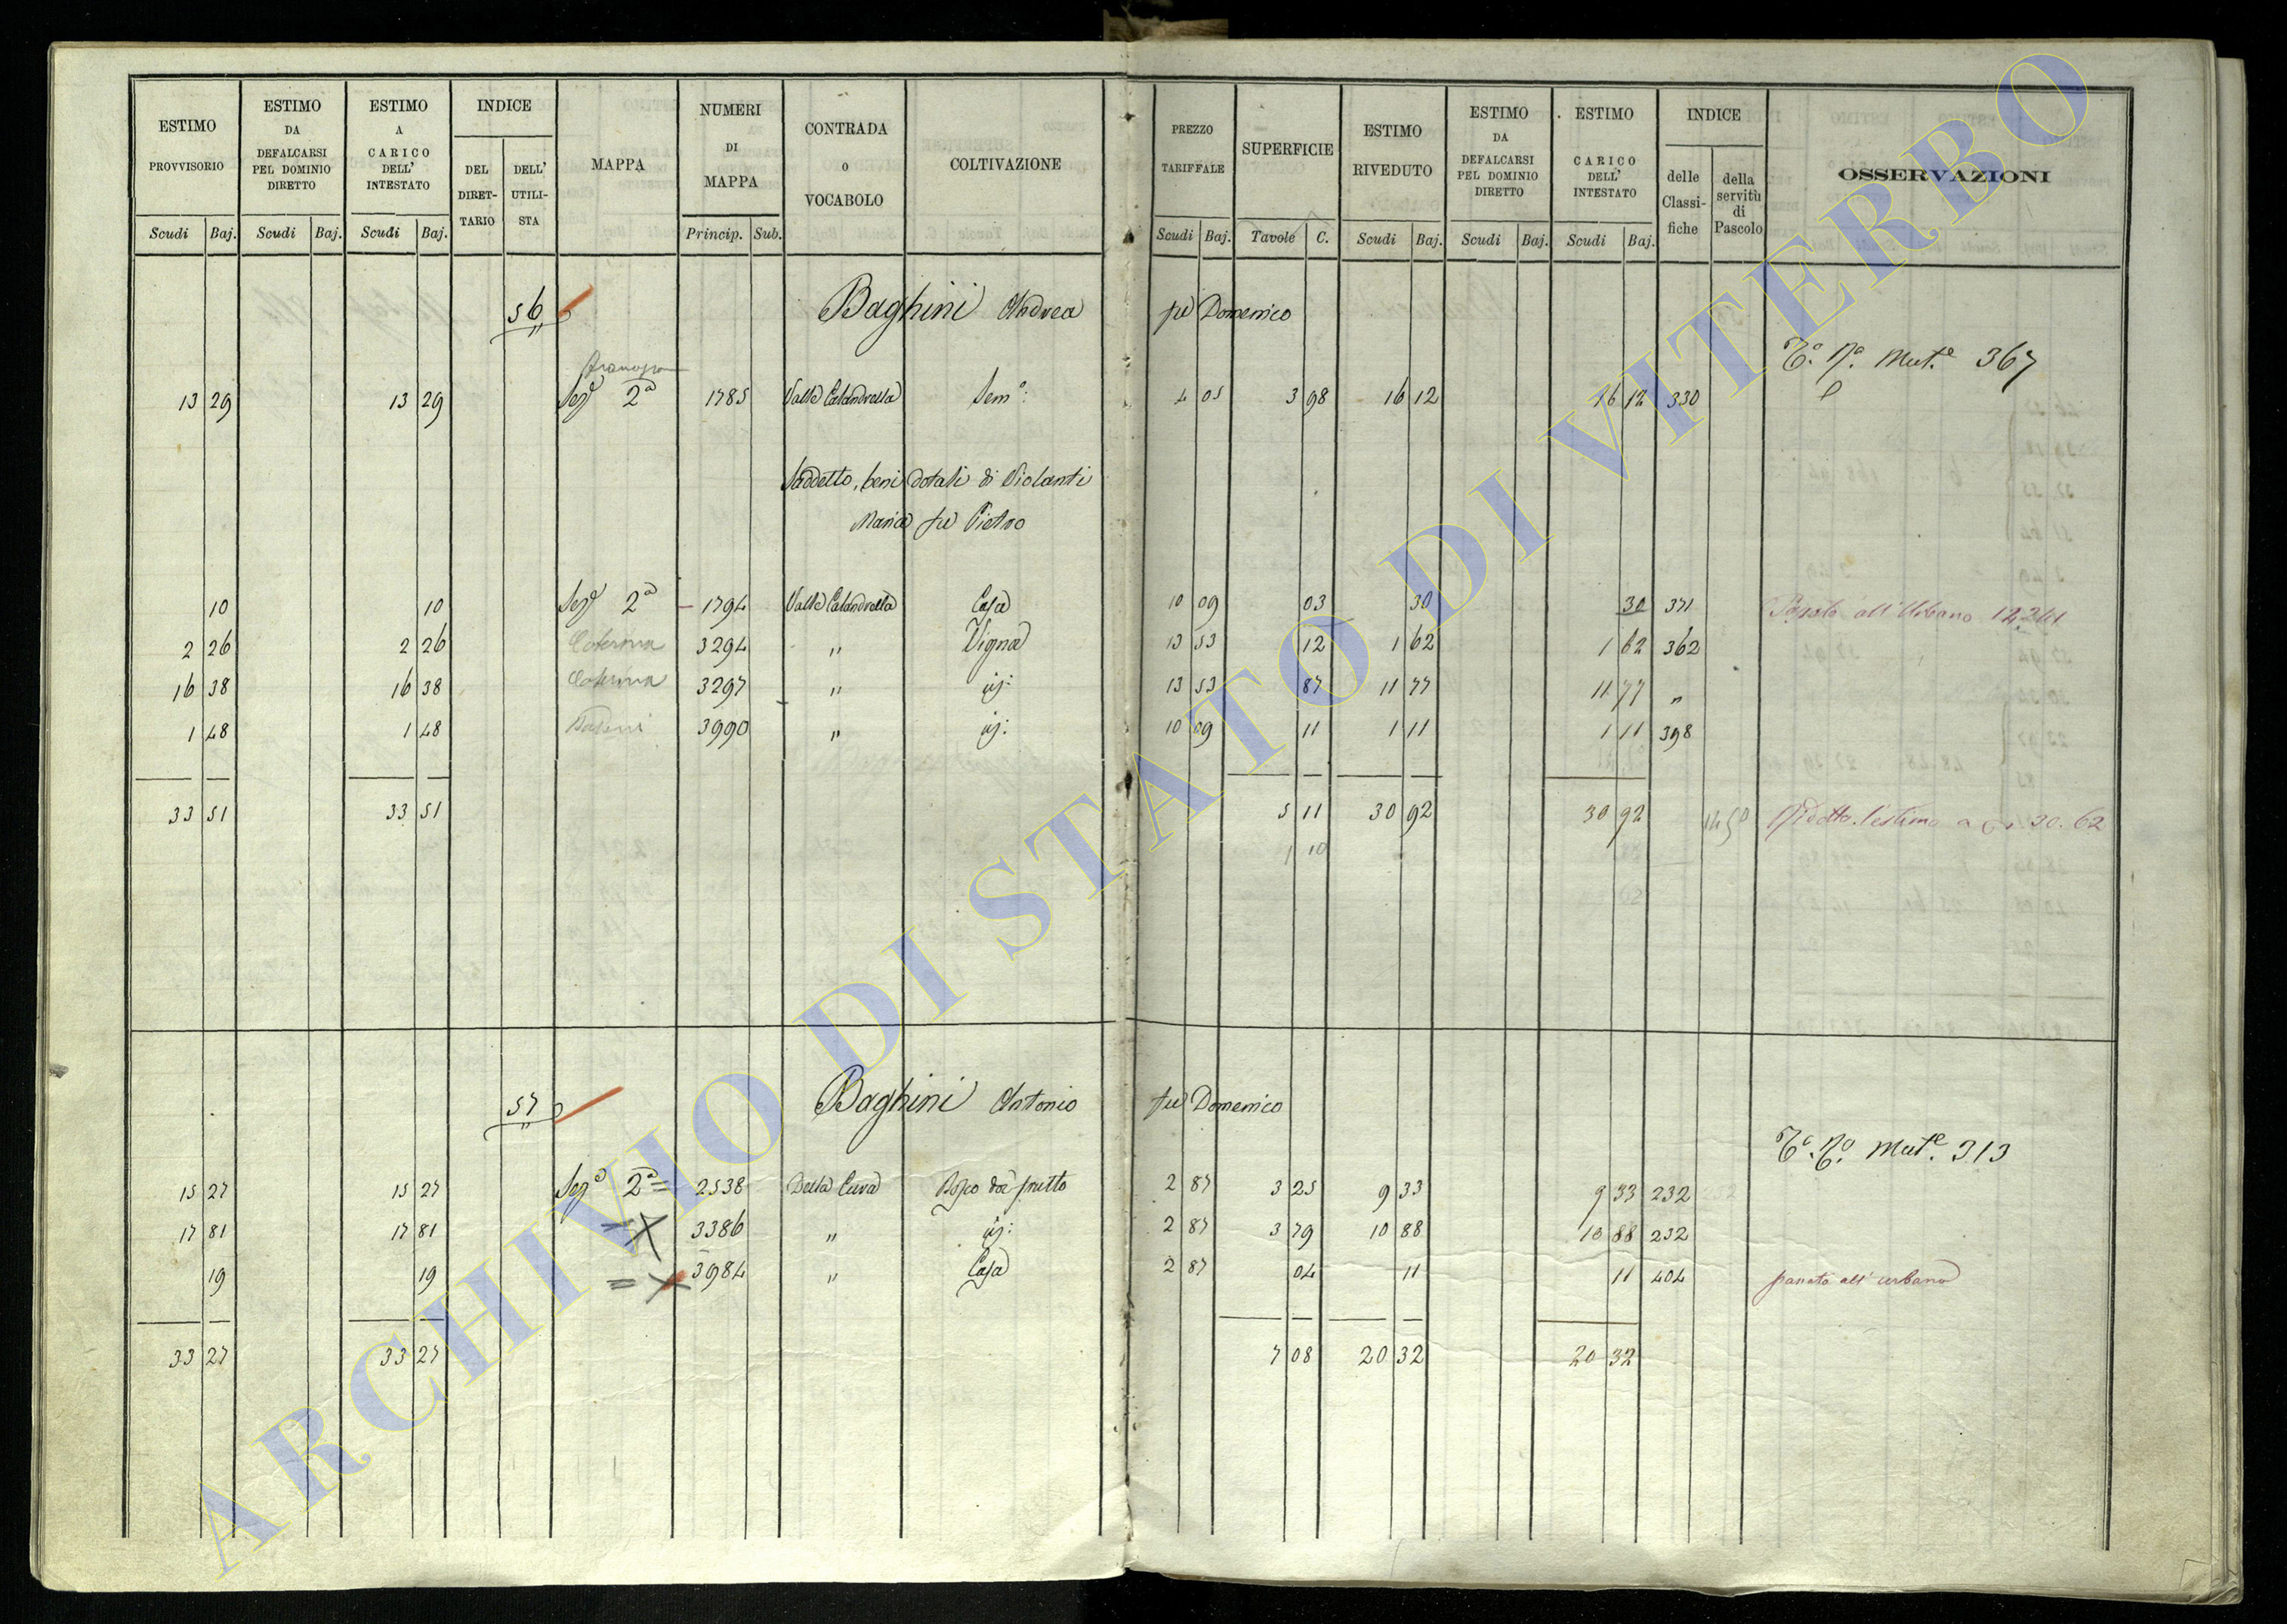 ESTIMO PROVVISORIO
ESTIMO DA DEFALCARSI PEL DOMINIO DIRETTO
ESTIMO A CARICO DELL' INTESTATO
INDICE
DEL DIRET-TARIO
DELL' UTILI-STA
MAPPA
NUMERI DI MAPPA
CONTRADA o VOCABOLO
COLTIVAZIONE
PREZZO TARIFFALE
SUPERFICIE
ESTIMO RIVEDUTO
ESTIMO DA DEFALCARSI PEL DOMINIO DIRETTO
ESTIMO CARICO DELL' INTESTATO
INDICE
delle Classi-fiche
della servitù di Pascolo
OSSERVAZIONI
Scudi Baj. Scudi Baj. Scudi Baj. Princip. Sub. Scudi Baj. Tavole C. Scudi Baj. Scudi Baj. Scudi Baj.
56 Baghini Andrea fu Domenico
Mut.e 367
13 29 13 29 Sez.e 2a 1785 Valle Calandrella Sem.o: 4 05 3 98 16 12 16 12 330
Suddetto, beni dotali di Violanti
Maria fu Pietro
10 10 Sez.e 2a 1794 Valle Calandrella Casa 10 09 03 30 30 371 Passato all'Urbano
2 26 2 26 Caterina 3294 " Vigna 13 53 12 1 62 1 62 362
16 38 16 38 Caterina 3297 " id: 13 53 87 11 77 11 77 "
1 48 1 48 3990 " id: 10 09 11 1 11 1 11 398
33 51 33 51 5 11 30 92 30 92 Ridotto l'estimo a 30.62
1 10
57 Baghini Antonio fu Domenico
Mut.e 313
15 27 15 27 Sez.e 2a = 2538 Della Cava Bosco da frutto 2 87 3 25 9 33 9 33 232
17 81 17 81 = X 3386 " id: 2 87 3 79 10 88 10 88 232
19 19 = X 3984 " Casa 2 87 04 11 11 404 passato all'urbano
33 27 33 27 7 08 20 32 20 32
ARCHIVIO DI STATO DI VITERBO